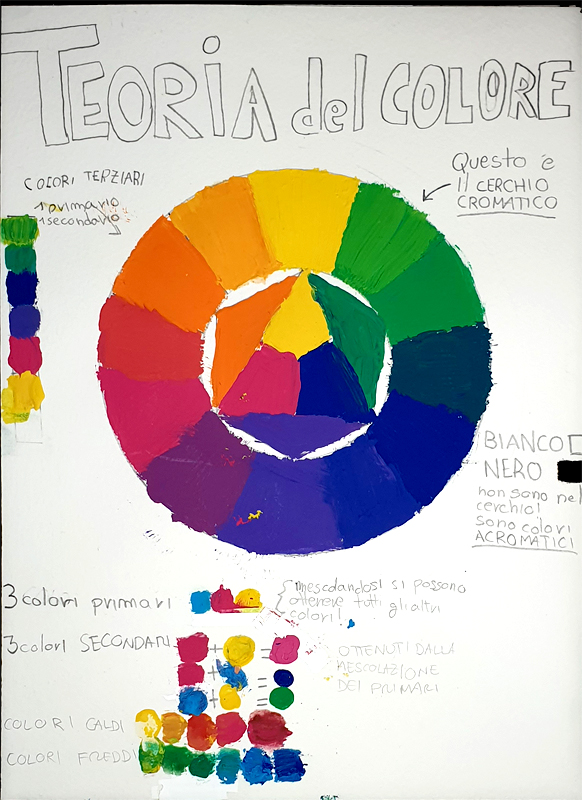 TEORIA del COLORE
COLORI TERZIARI
1 primario
1 secondario
Questo è
Il CERCHIO
CROMATICO
BIANCO
NERO
non sono nel
cerchio!
Sono colori
ACROMATICI
3 colori primari
mescolandosi si possono
ottenere tutti gli altri
colori!
3 colori SECONDARI
+ =
+ =
+ =
OTTENUTI DALLA
MESCOLAZIONE
DEI PRIMARI
COLORI CALDI
COLORI FREDDI